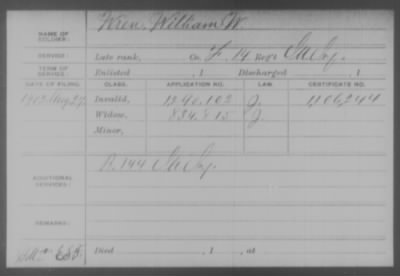 NAME OF SOLDIER: Wren, William W.
SERVICE: Late rank, Co. F, 14 Reg't
TERM OF SERVICE: Enlisted , 1 Discharged , 1
DATE OF FILING. CLASS. APPLICATION NO. LAW. CERTIFICATE NO.
1902 Aug 27 Invalid, 1240.102 J. 1106244
Widow, 834.815 J.
Minor,
ADDITIONAL SERVICES: 144
REMARKS:
Died , 1 , at